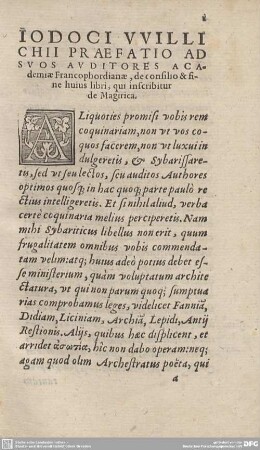 IODOCI VVILLI
CHII PRAEFATIO AD
SVOS AVDITORES ACA-
demiæ Francophordianæ, de consilio & fi
ne huius libri, qui inscribitur
de Magirica.
ALiquoties promisi vobis rem
coquinariam, non vt vos co
quos facerem, non vt luxui in
dulgeretis, & Sybarissare-
tis, sed vt seu lectos, seu auditos Authores
optimos quosq; in hac quoq; parte paulò re
ctius intelligeretis. Et si nihil aliud, verba
certè coquinaria melius perciperetis. Nam
mihi Sybariticus libellus non erit, quum
frugalitatem omnibus vobis commenda-
tam velim: atq; huius adeò potius debet es-
se ministerium, quàm voluptatum archite
ctatura, vt qui non parum quoq; sumptua
rias comprobamus leges, videlicet Fanniã,
Didiam, Liciniam, Archiã, Lepidi, Antij
Restionis. Alijs, quibus hæc displicent, et
arridet ἀσωτία, hîc non dabo operam: neq;
agam quod olim Archestratus poëta, qui
a